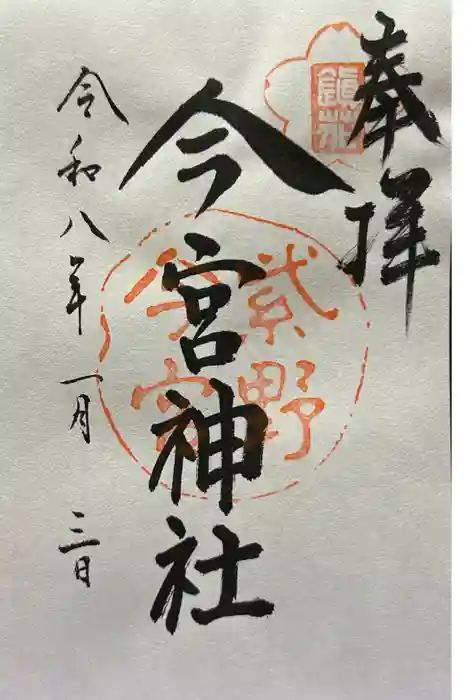 奉拝
鎮花
今宮神社
紫野
今宮
令和八年一月三日